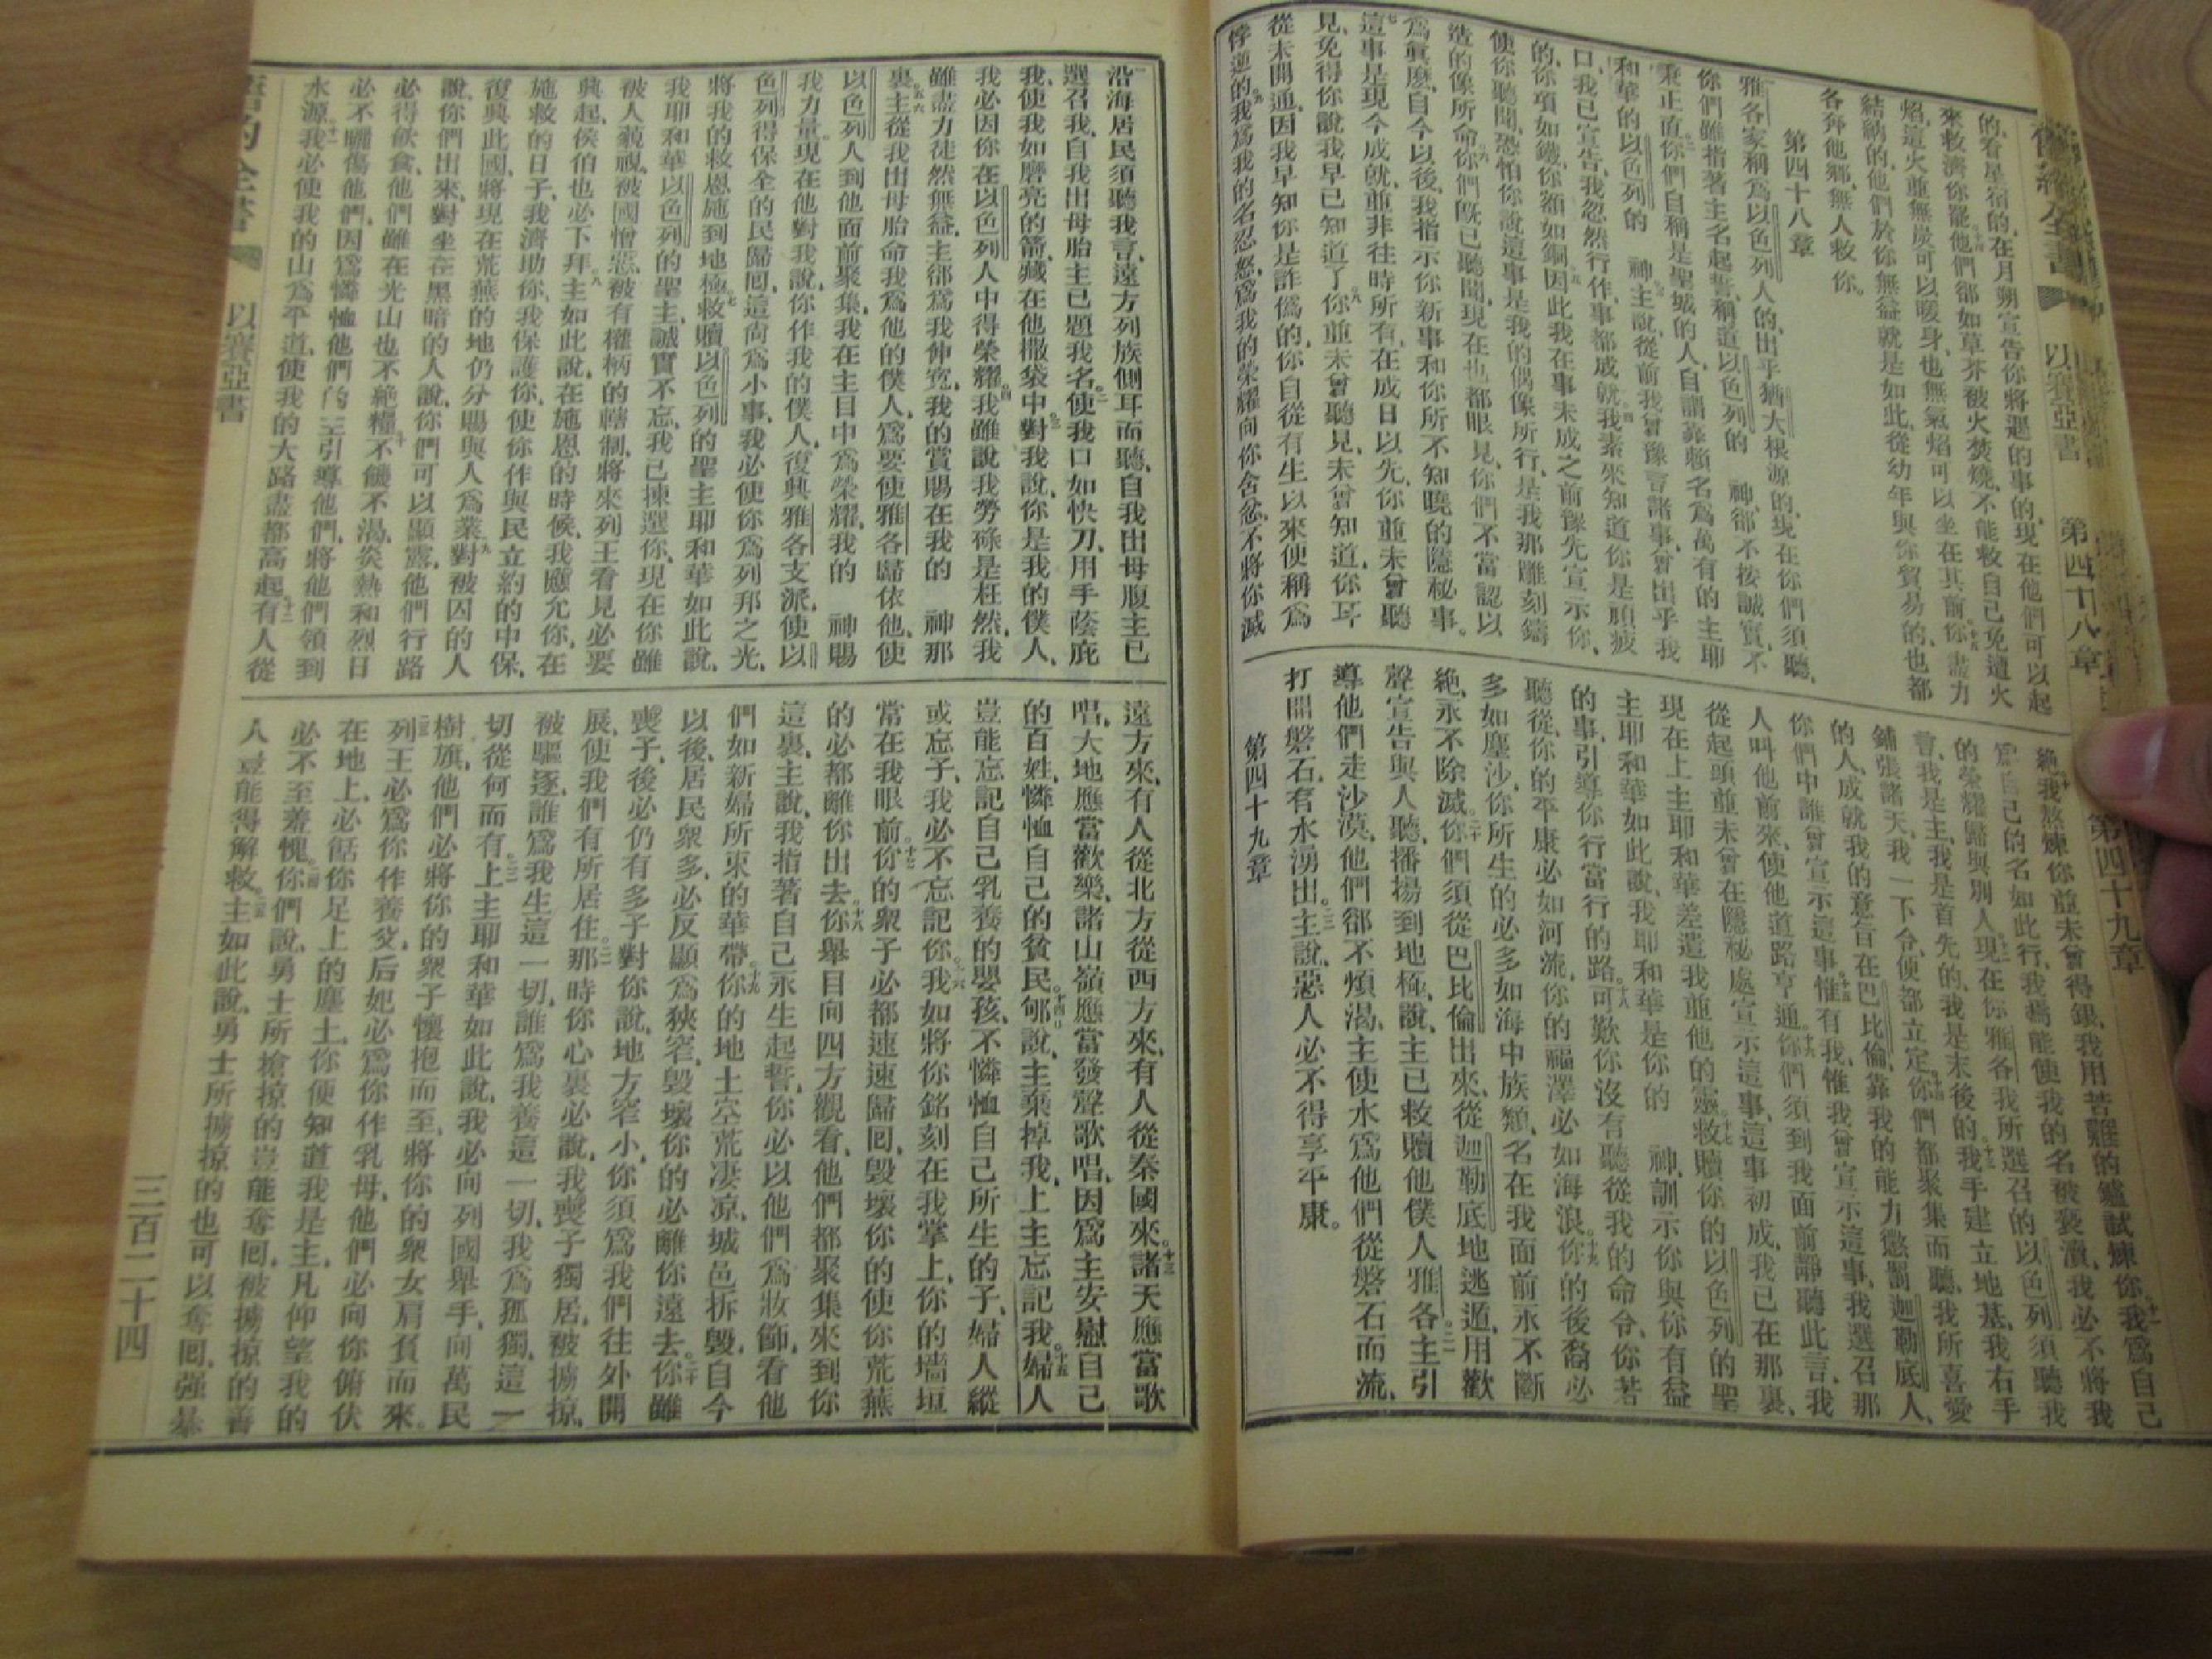 舊約全書 以賽亞書 第四十八章 第四十九章
的、看星宿的、在月朔宣告你將遇的事的、現在他們可以起
來救濟你罷他們都如草芥被火焚燒、不能救自己免遭火
焰、這火並無炭可以暖身、也無氣焰可以坐在其前你盡力
結納的、他們於你無益就是如此、從幼年與你貿易的、也都
各奔他鄉、無人救你。
第四十八章
雅各家稱爲以色列人的、出乎猶大根源的、現在你們須聽、
你們雖指著主名起誓、稱道以色列的 神、卻不按誠實、不
秉正直你們自稱是聖城的人、自謂靠賴名爲萬有的主耶
和華的以色列的 神主說、從前我曾豫言諸事、曾出乎我
口、我已宣告、我忽然行作、事都成就我素來知道你是頑梗
的、你項如鐵、你額如銅因此我在事未成之前豫先宣示你、
使你聽聞、恐怕你說這事是我的偶像所行、是我那雕刻鑄
造的像所命你們旣已聽聞、現在也都眼見、你們不當認以
爲眞麽、自今以後、我指示你新事和你所不知曉的隱秘事。
這事是現今成就、並非往時所有、在成日以先、你並未曾聽
見、免得你說我早已知道了你並未曾聽見、未曾知道、你耳
從未開通、因我早知你是詐僞的、你自從有生以來便稱爲
悖逆的我爲我的名忍怒、爲我的榮耀向你含忍、不將你滅
絕我熬煉你並未曾得銀、我用苦難的爐試煉你我爲自己
爲自己的名如此行、我焉能使我的名被褻瀆、我必不將我
的榮耀歸與別人現在你雅各我所選召的以色列須聽我
言、我是主、我是首先的、我是末後的我手建立地基、我右手
鋪張諸天、我一下令、便都立定你們都聚集而聽、我所喜愛
的人、成就我的意旨在巴比倫、靠我的能力懲罰迦勒底人、
你們中誰曾宣示這事惟有我、惟我曾宣示這事、我選召那
人叫他前來、使他道路亨通你們須到我面前靜聽此言、我
從起頭並未曾在隱秘處宣示這事、這事初成、我已在那裏、
現在上主耶和華差遣我並他的靈救贖你的以色列的聖
主耶和華如此說、我耶和華是你的 神、訓示你與你有益
的事、引導你行當行的路可歎你沒有聽從我的命令、你若
聽從、你的平康必如河流、你的福澤必如海浪你的後裔必
多如塵沙、你所生的必多如海中族類、名在我面前永不斷
絕、永不除滅你們須從巴比倫出來、從迦勒底地逃遁、用歡
聲宣告與人聽、播揚到地極、說、主已救贖他僕人雅各主引
導他們走沙漠、他們卻不煩渴、主使水爲他們從磐石而流、
打開磐石、有水湧出主說、惡人必不得享平康。
第四十九章
沿海居民須聽我言、遠方列族側耳而聽、自我出母腹主已
選召我、自我出母胎主已題我名使我口如快刀、用手蔭庇
我、使我如磨亮的箭、藏在他撒袋中對我說、你是我的僕人、
我必因你在以色列人中得榮耀我雖說我勞碌是枉然、我
雖盡力徒然無益、主卻爲我伸寃、我的賞賜在我的 神那
裏主從我出母胎命我爲他的僕人、爲要使雅各歸依他、使
以色列人到他面前聚集、我在主目中爲榮耀、我的 神賜
我力量現在他對我說、你作我的僕人、復興雅各支派、使以
色列得保全的民歸囘、這尙爲小事、我必使你爲列邦之光、
將我的救恩施到地極救贖以色列的聖主耶和華如此說、
我耶和華以色列的聖主、誠實不忘、我已揀選你、現在你雖
被人藐視、被國憎惡、被有權柄的轄制、將來列王看見必要
興起、侯伯也必下拜主如此說、在施恩的時候、我應允你、在
施救的日子、我濟助你、我保護你、使你作與民立約的中保、
復興此國、將現在荒蕪的地仍分賜與人爲業對被囚的人
說、你們出來、對坐在黑暗的人說、你們可以顯露、他們行路
必得飲食、他們雖在光山也不絕糧不饑不渴、炎熱和烈日
必不曬傷他們、因爲憐恤他們的主引導他們、將他們領到
水源我必使我的山爲平道、使我的大路盡都高起有人從
遠方來、有人從北方從西方來、有人從秦國來諸天應當歌
唱、大地應當歡樂、諸山嶺應當發聲歌唱、因爲主安慰自己
的百姓、憐恤自己的貧民郇說、主棄掉我、上主忘記我婦人
豈能忘記自己乳養的嬰孩、不憐恤自己所生的子、婦人縱
或忘子、我必不忘記你我如將你銘刻在我掌上、你的墻垣
常在我眼前你的衆子必都速速歸囘、毀壞你的使你荒蕪
的必都離你出去你舉目向四方觀看、他們都聚集來到你
這裏、主說、我指著自己永生起誓、你必以他們爲妝飾、看他
們如新婦所束的華帶你的地土空荒凄凉、城邑拆毀、自今
以後、居民衆多、必反顯爲狹窄、毀壞你的必離你遠去你雖
喪子、後必仍有多子對你說、地方窄小、你須爲我們往外開
展、使我們有所居住那時你心裏必說、我喪子獨居、被擄掠、
被驅逐、誰爲我生這一切、誰爲我養這一切、我爲孤獨、這一
切從何而有上主耶和華如此說、我必向列國舉手、向萬民
樹旗、他們必將你的衆子懷抱而至、將你的衆女肩負而來。
列王必爲你作養父、后妃必爲你作乳母、他們必向你俯伏
在地上、必餂你足上的塵土、你便知道我是主、凡仰望我的
必不至羞愧你們說、勇士所搶掠的豈能奪囘、被擄掠的善
人豈能得解救主如此說、勇士所擄掠的也可以奪囘、强暴
舊約全書 以賽亞書 三百二十四